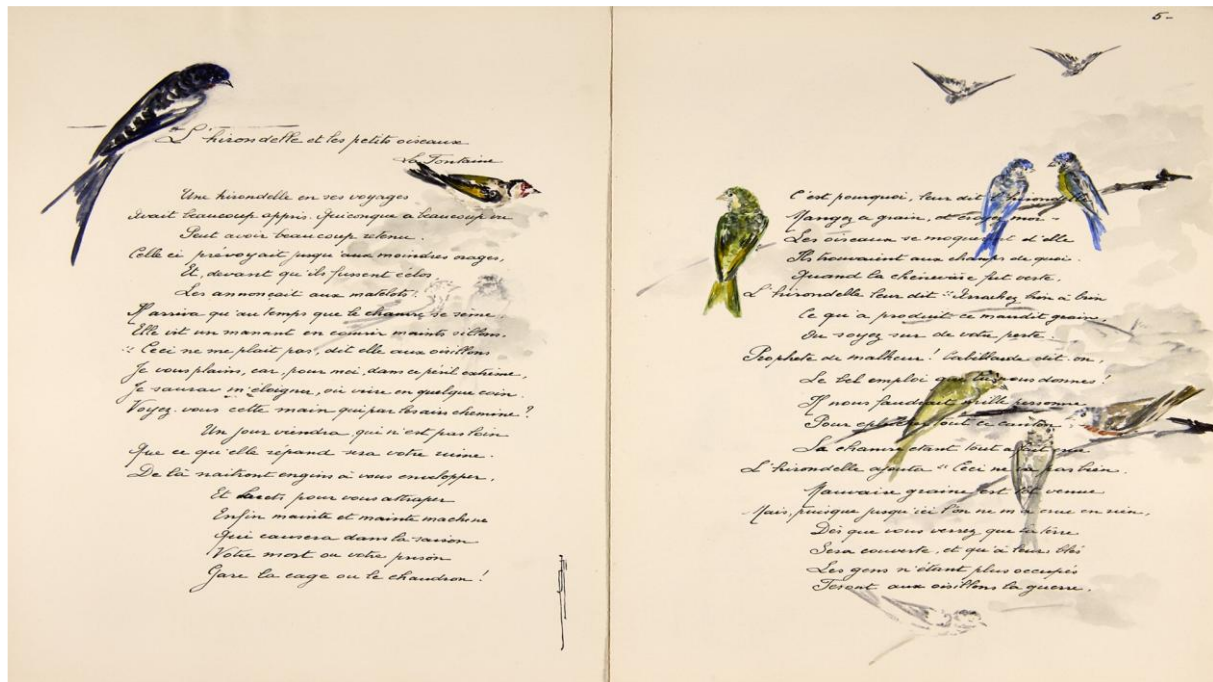 L'hirondelle et les petits oiseaux
La Fontaine
Une hirondelle en ses voyages
Avait beaucoup appris. Quiconque a beaucoup vu
Peut avoir beaucoup retenu.
Celle ci prévoyait jusqu'aux moindres orages,
Et, devant qu'ils fussent éclos,
Les annonçait aux matelots.
Il arriva qu'au temps que le chanvre se sème
Elle vit un manant en couvrir maints sillons.
" Ceci ne me plait pas, dit elle aux oisillons
Je vous plains, car, pour moi, dans ce péril extrème,
Je saurai m'éloigner, où vivre en quelque coin.
Voyez vous cette main qui par les airs chemine ?
Un jour viendra, qui n'est pas loin
Que ce qu'elle répand sera votre ruine.
De là naitront engins à vous envelopper,
Et lacets pour vous attraper
Enfin mainte et mainte machine
Qui causera dans la saison
Votre mort ou votre prison
Gare la cage ou le chaudron !
5-
C'est pourquoi, leur dit l'hirond
Mangez ce grain, et croyez moi -
Les oiseaux se moquèrent d'elle
Ils trouvaient aux champs de quoi.
Quand la chènevière fut verte.
L'hirondelle leur dit " Arrachez brin à brin
Ce qu'a produit ce maudit grain,
Ou soyez sur de votre perte.
Prophète de malheur ! babillarde dit on,
Le bel emploi que tu nous donnes !
Il nous faudrait mille personnes
Pour eplucher tout ce canton
La chanvre étant tout a fait
L'hirondelle ajouta " Ceci ne va pas bien.
Mauvaise graine est tôt venue
Mais, puisque jusqu'ici l'on ne m'a crue en rien,
Dès que vous verrez que la terre
Sera couverte, et qu'à leur blés
Les gens n'étant plus occupés
Feront aux oisillons la guerre.